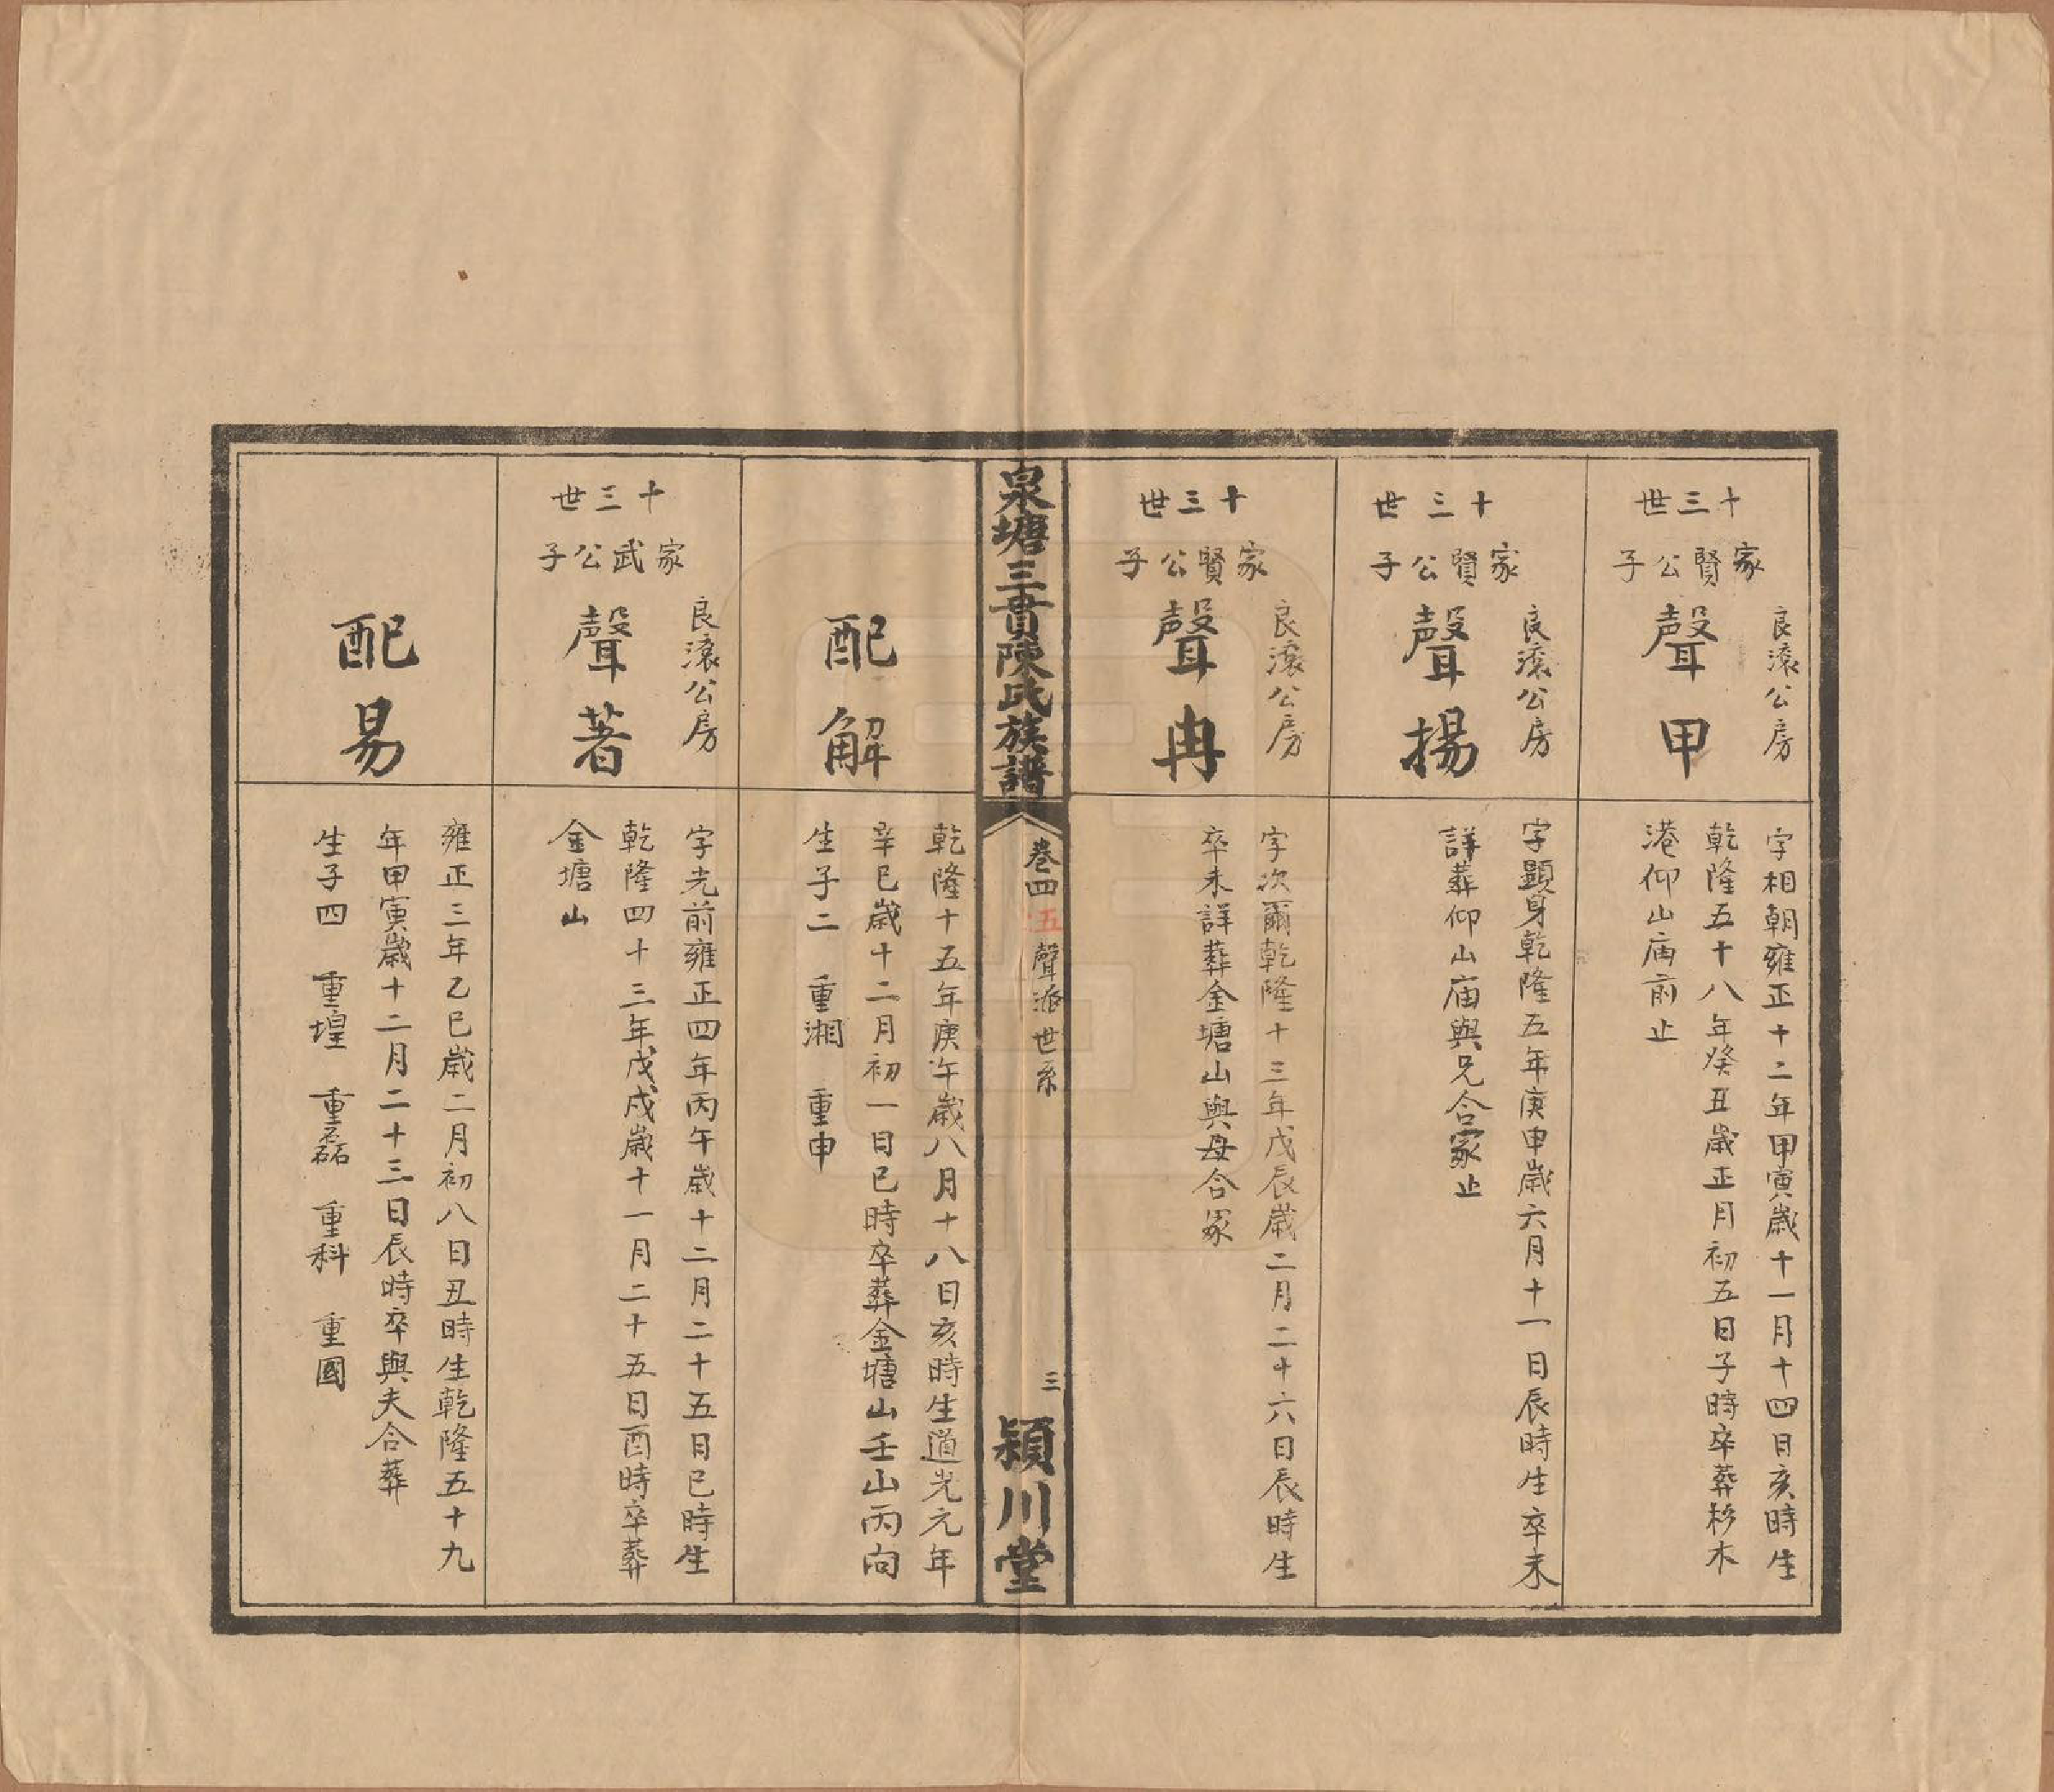 十三世
家賢公子
良滾公房
聲甲
字相朝雍正十二年甲寅歲十一月十四日亥時生
乾隆五十八年癸丑歲正月初五日子時卒葬杉木
港仰山庙前止
十三世
家賢公子
良滾公房
聲揚
字顕身乾隆五年庚申歲六月十一日辰時生卒未
詳葬仰山庙與兄合冢止
十三世
家賢公子
良滾公房
聲冉
字次爾乾隆十三年戊辰歲二月二十六日辰時生
卒未詳葬金塘山與母合冢
泉塘三貫陳氏族譜
卷四
五
聲派世系
三
潁川堂
配解
乾隆十五年庚午歲八月十八日亥時生道光元年
辛巳歲十二月初一日巳時卒葬金塘山壬山丙向
生子二 重湘 重申
十三世
家武公子
良滾公房
聲著
字光前雍正四年丙午歲十二月二十五日巳時生
乾隆四十三年戊戌歲十一月二十五日酉時卒葬
金塘山
配易
雍正三年乙巳歲二月初八日丑時生乾隆五十九
年甲寅歲十二月二十三日辰時卒與夫合葬
生子四 重堭 重磊 重科 重國